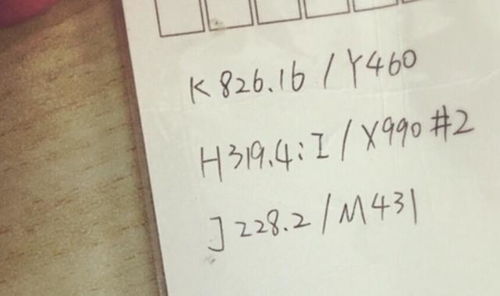 K826.16/Y460
H319.4:I/X990#2
J228.2/M431